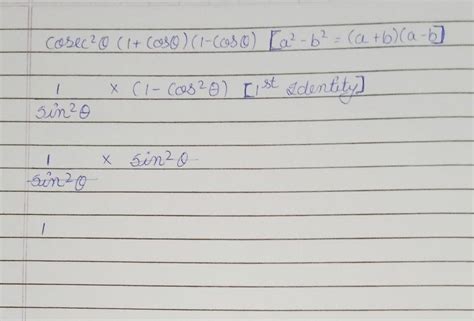 cosec²θ (1+cosθ)(1-cosθ) [a²-b² = (a+b)(a-b]
1/sin²θ × (1-cos²θ) [1st Identity]
1/sin²θ × sin²θ
1